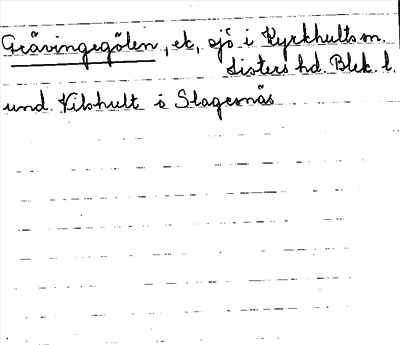 Grävingegölen, ek, sjö i Kyrkhults sn.
Listers hd. Blek. l.
und. Vilshult o Slagesnäs